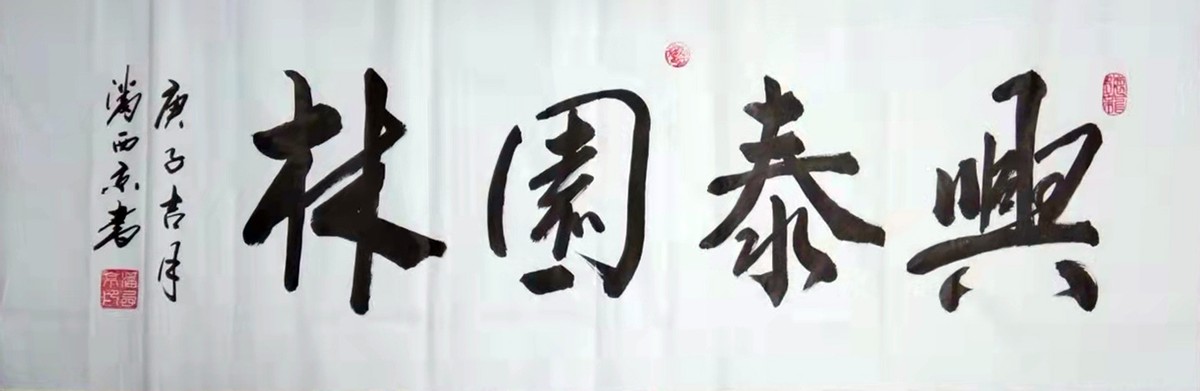 興泰園林
庚子吉月
潘西京書